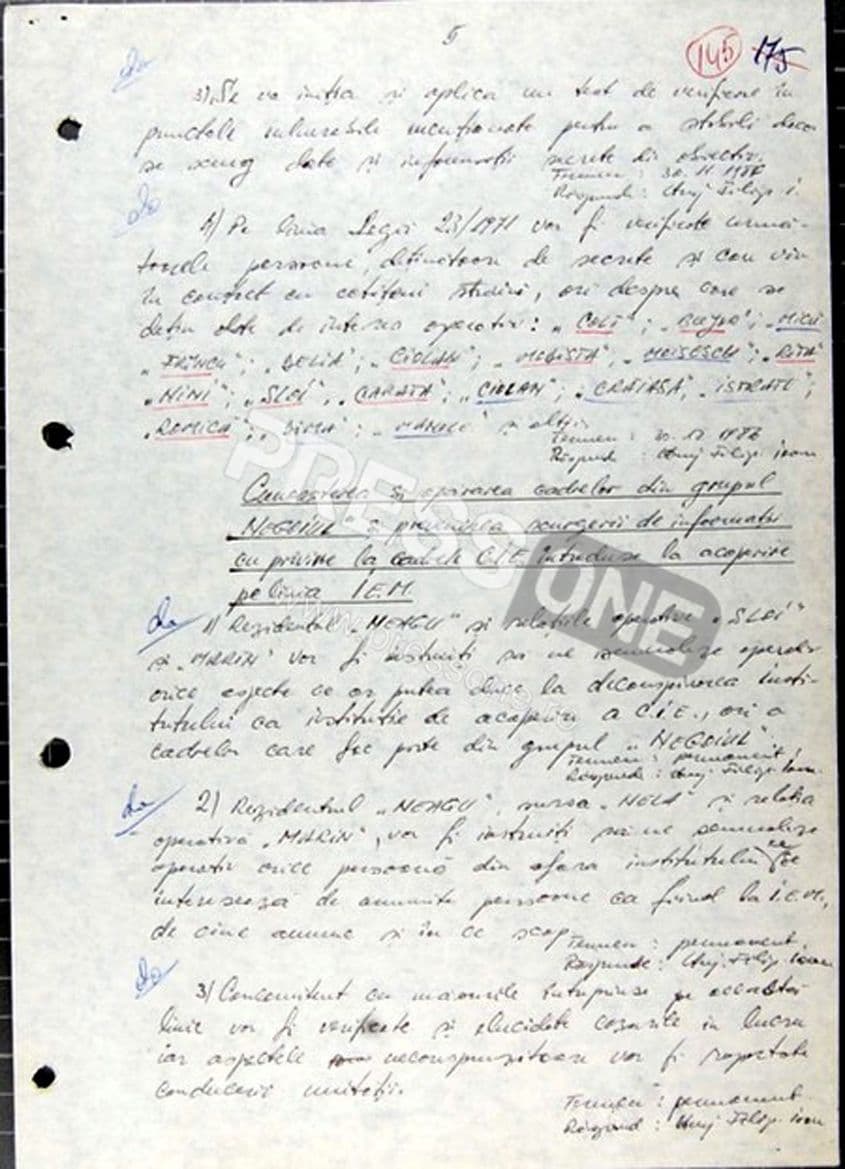 5
145 175
da
3) Se va iniția și aplica un test de verificare în
punctele vulnerabile menționate pentru a stabili daca
se scurg date și informații secrete din obiectiv.
Termen : 30.11.
Răspunde : Filip I.
da
4) Pe linia Legii 23/1971 vor fi verificate urmă-
toarele persoane, deținătoare de secrete și care vin
în contact cu cetățeni străini, ori despre care se
dețin date de interes operativ: „ ”; „ ”; „
„FRÎNCU”; „DELIA”; „CIOLAN”; „MODISTA”, „MOISESCU”; „RITA”
„MIMI”; „SLEI”, „ ”; „CIOLAN”; „CRĂIASA”, „ISTRATE”;
„RODICA”; „ ”; „ ” și alții.
Termen :
Răspunde : Filip Ioan
Cunoașterea și apărarea cadrelor din grupul
NEGOIUL și prevenirea scurgerii de informații
cu privire la cadrele C.I.E. introduse la acoperire
pe linia I.E.M.
da 1) Rezidentul „NEAGU” și relațiile operative „SLEI”
și „MARIN” vor fi instruiți să ne semnaleze operativ
orice aspecte ce ar putea duce la deconspirarea insti-
tutului ca instituție de acoperire a C.I.E., ori a
cadrelor care fac parte din grupul „NEGOIUL”.
Termen : permanent,
Răspunde : Filip Ioan.
da 2) Rezidentul „NEAGU”, sursa „NELA” și relația
operativă „MARIN”, vor fi instruiți să ne semnaleze
operativ orice persoană din afara institutului ce se
interesează de anumite persoane ca fiind la I.E.M.,
de cine anume și în ce scop.
Termen : permanent.
Răspunde : Filip Ioan
da
3) Concomitent cu măsurile întreprinse pe această
linie vor fi verificate și elucidate cazurile în lucru
iar aspectele deconspiratoare vor fi raportate
conducerii unității.
Termen : permanent
Răspunde : Filip Ioan
PRESS
ONE